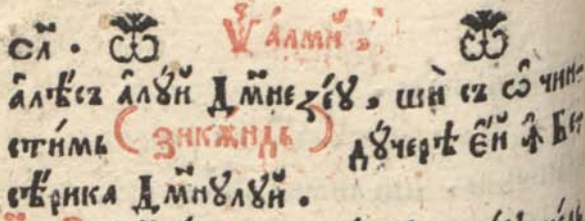 сл҃ · Ѱалмй :
а҆лѣсъ а҆лꙋй Дм҃незєꙋ , шѝ съ ѡ҆ чин-
стимь ( зикѫндь ) дꙋчерѣ є҆й ꙟ Бе-
сѣрика Дм҃нꙋлꙋй .